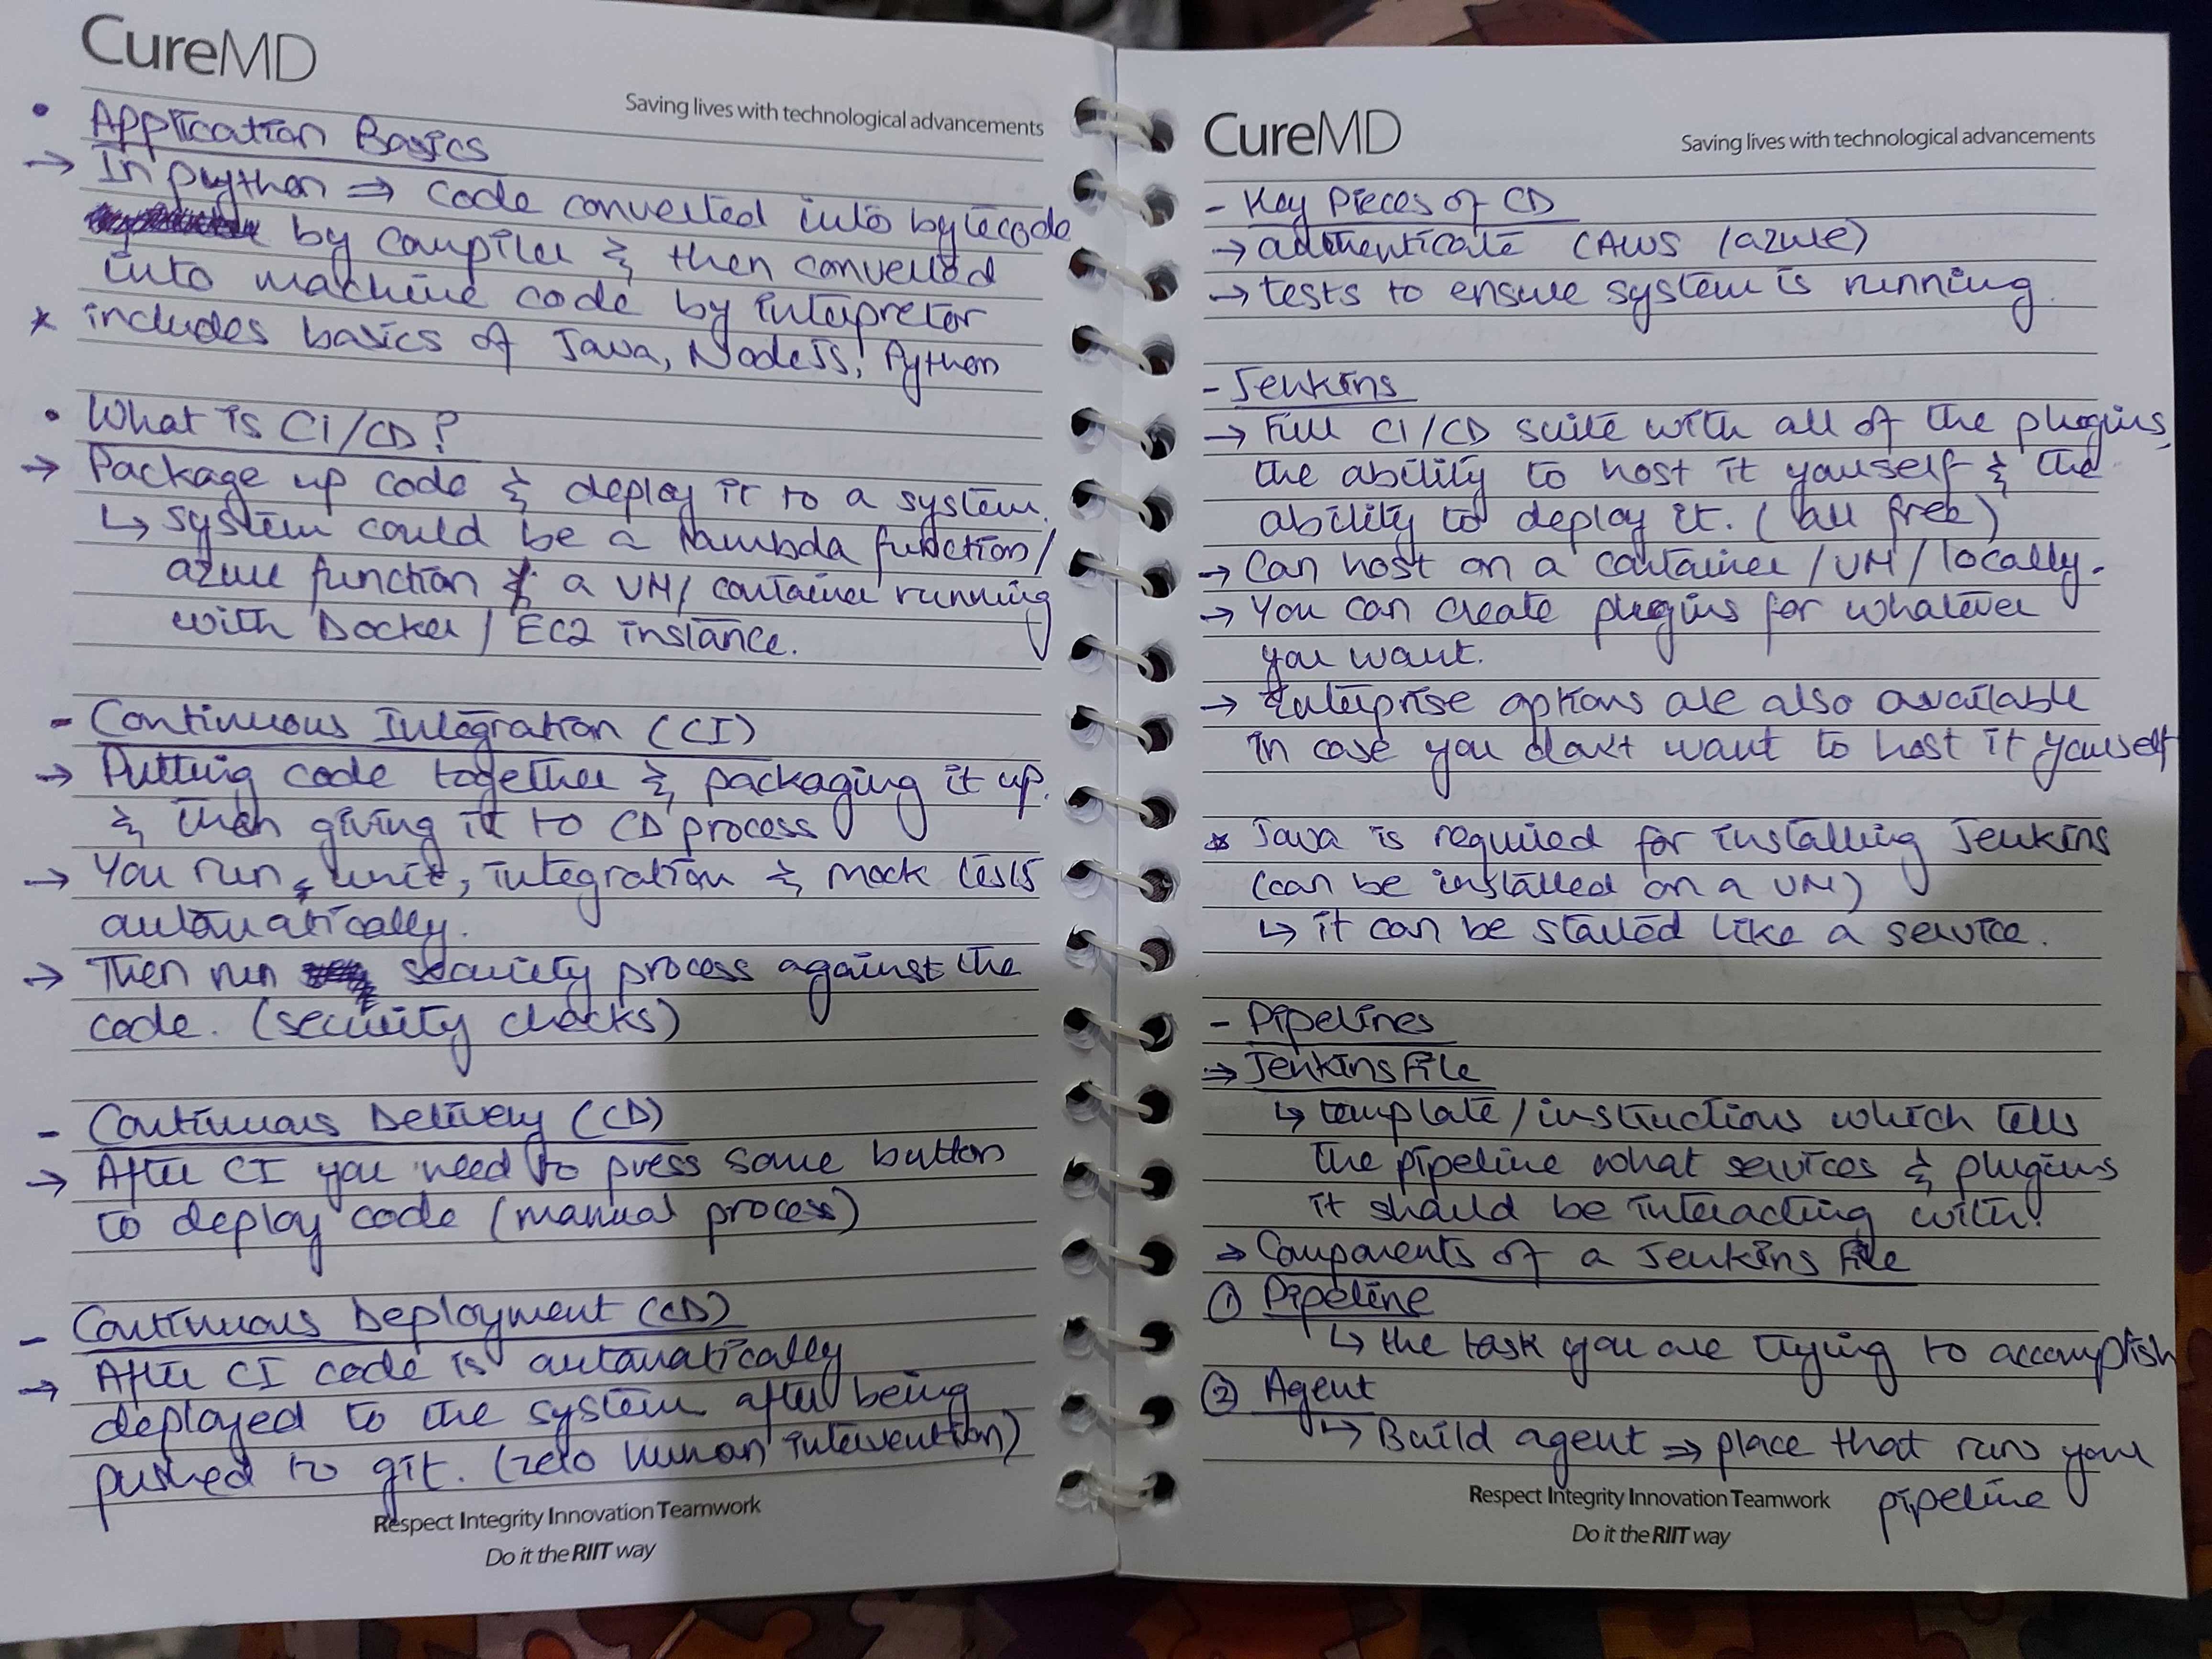 CureMD
Saving lives with technological advancements
• Application Basics
→ In python ⇒ code converted into bytecode
by compiler & then converted
into machine code by interpretor
* includes basics of Java, NodeJS, Python
• What is CI/CD?
→ Package up code & deploy it to a system.
↳ system could be a lambda function/
azure function / a VM/ container running
with Docker / EC2 instance.
- Continuous Integration (CI)
→ Putting code together & packaging it up.
& then giving it to CD process
→ You run unit, integration & mock tests
automatically.
→ Then run security process against the
code. (security checks)
- Continuous Delivery (CD)
→ After CI you need to press some button
to deploy code (manual process)
- Continuous Deployment (CD)
→ After CI code is automatically
deployed to the system after being
pushed to git. (zero human intervention)
Respect Integrity Innovation Teamwork
Do it the RIIT way
CureMD
Saving lives with technological advancements
- Key Pieces of CD
→ authenticate (AWS /azure)
→ tests to ensure system is running.
- Jenkins
→ Full CI/CD suite with all of the plugins,
the ability to host it yourself & the
ability to deploy it. (all free)
→ Can host on a container /VM/ locally.
→ You can create plugins for whatever
you want.
→ Enterprise options are also available
in case you don't want to host it yourself
* Java is required for installing Jenkins
(can be installed on a VM)
↳ it can be started like a service.
- Pipelines
⇒ Jenkins File
↳ template/instructions which tells
the pipeline what services & plugins
it should be interacting with.
⇒ Components of a Jenkins File
① Pipeline
↳ the task you are trying to accomplish
② Agent
↳ Build agent ⇒ place that runs your
pipeline
Respect Integrity Innovation Teamwork
Do it the RIIT way